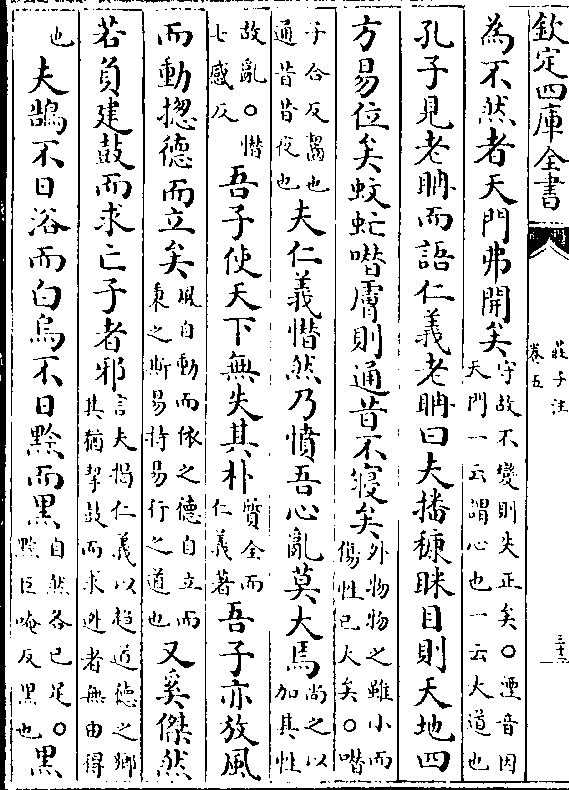 欽定四庫全書
莊子注
卷五
為不然者天門弗開矣守故不變則失正矣○湮音因
天門一云謂心也一云大道也
孔子見老聃而語仁義老聃曰夫播穅眯目則天地四
方易位矣蚊虻噆膚則通昔不寢矣外物物之雖小而
傷性已大矣○噆
子合反齧也
通昔昔夜也夫仁義憯然乃憤吾心亂莫大焉尚之以
加其性
故亂○憯
七感反吾子使天下無失其朴質全而
仁義著吾子亦放風
而動揔德而立矣風自動而依之德自立而
秉之斯易持易行之道也又奚傑然
若負建鼓而求亡子者邪言夫揭仁義以趨道德之鄉
其猶擊鼓而求逃者無由得
也夫鵠不日浴而白烏不日黔而黑自然各已足○
黔巨唵反黑也黑